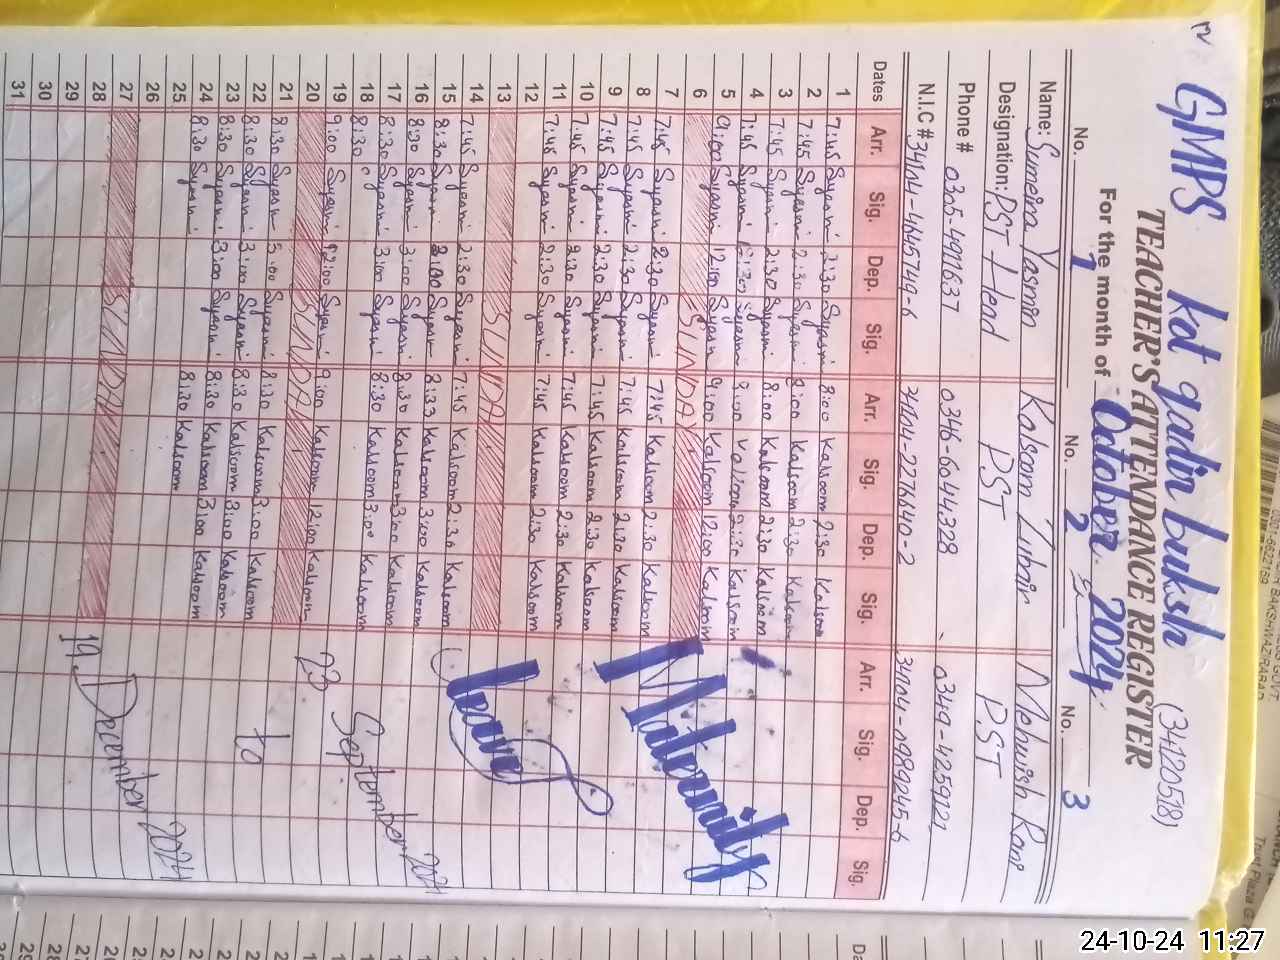 GMPS kot qadir buksh (34120518)
TEACHER'S ATTENDANCE REGISTER
For the month of October 2024
No. 1 No. 2 No. 3
Name: Sumeira Yasmin Kalsoom Zubair Mehwish Rani
Designation: PST Head PST PST
Phone # 0305-4911637 0346-6044328 0349-4259121
N.I.C #
Dates Arr. Sig. Dep. Sig. Arr. Sig. Dep. Sig. Arr. Sig. Dep. Sig.
1 7:45 Syasmi 2:30 Syasmi 8:00 Kalsoom 2:30 Kalsoom
2 7:45 Syasmi 2:30 Syasmi 8:00 Kalsoom 2:30 Kalsoom
3 7:45 Syasmi 2:30 Syasmi 8:00 Kalsoom 2:30 Kalsoom
4 7:45 Syasmi Syasmi 8:00 Kalsoom 2:30 Kalsoom
5 9:00 Syasmi 12:00 Syasmi 9:00 Kalsoom 12:00 Kalsoom
6 SUNDAY
7 7:45 Syasmi 2:30 Syasmi 7:45 Kalsoom 2:30 Kalsoom
8 7:45 Syasmi 2:30 Syasmi 7:45 Kalsoom 2:30 Kalsoom
9 7:45 Syasmi 2:30 Syasmi 7:45 Kalsoom 2:30 Kalsoom
10 7:45 Syasmi 2:30 Syasmi 7:45 Kalsoom 2:30 Kalsoom
11 7:45 Syasmi 2:30 Syasmi 7:45 Kalsoom 2:30 Kalsoom
12
13 SUNDAY
14 7:45 Syasmi 2:30 Syasmi 7:45 Kalsoom 2:30 Kalsoom
15 8:30 Syasmi 3:00 Syasmi 8:33 Kalsoom 3:00 Kalsoom
16 8:30 Syasmi 3:00 Syasmi 8:30 Kalsoom 3:00 Kalsoom
17 8:30 Syasmi 3:00 Syasmi 8:30 Kalsoom 3:00 Kalsoom
18 8:30
19 9:00 Syasmi 12:00 Syasmi 9:00 Kalsoom 12:00 Kalsoom
20 SUNDAY
21 8:30 Syasmi 3:00 Syasmi 8:30 Kalsoom 3:00 Kalsoom
22 8:30 Syasmi 3:00 Syasmi 8:30 Kalsoom 3:00 Kalsoom
23 8:30 Syasmi 3:00 Syasmi 8:30 Kalsoom 3:00 Kalsoom
24 8:30 Syasmi 8:30 Kalsoom
25
26
27 SUNDAY
28
29
30
31
Maternity
leave
23 September 2024
to
19 December 2024
24-10-24 11:27